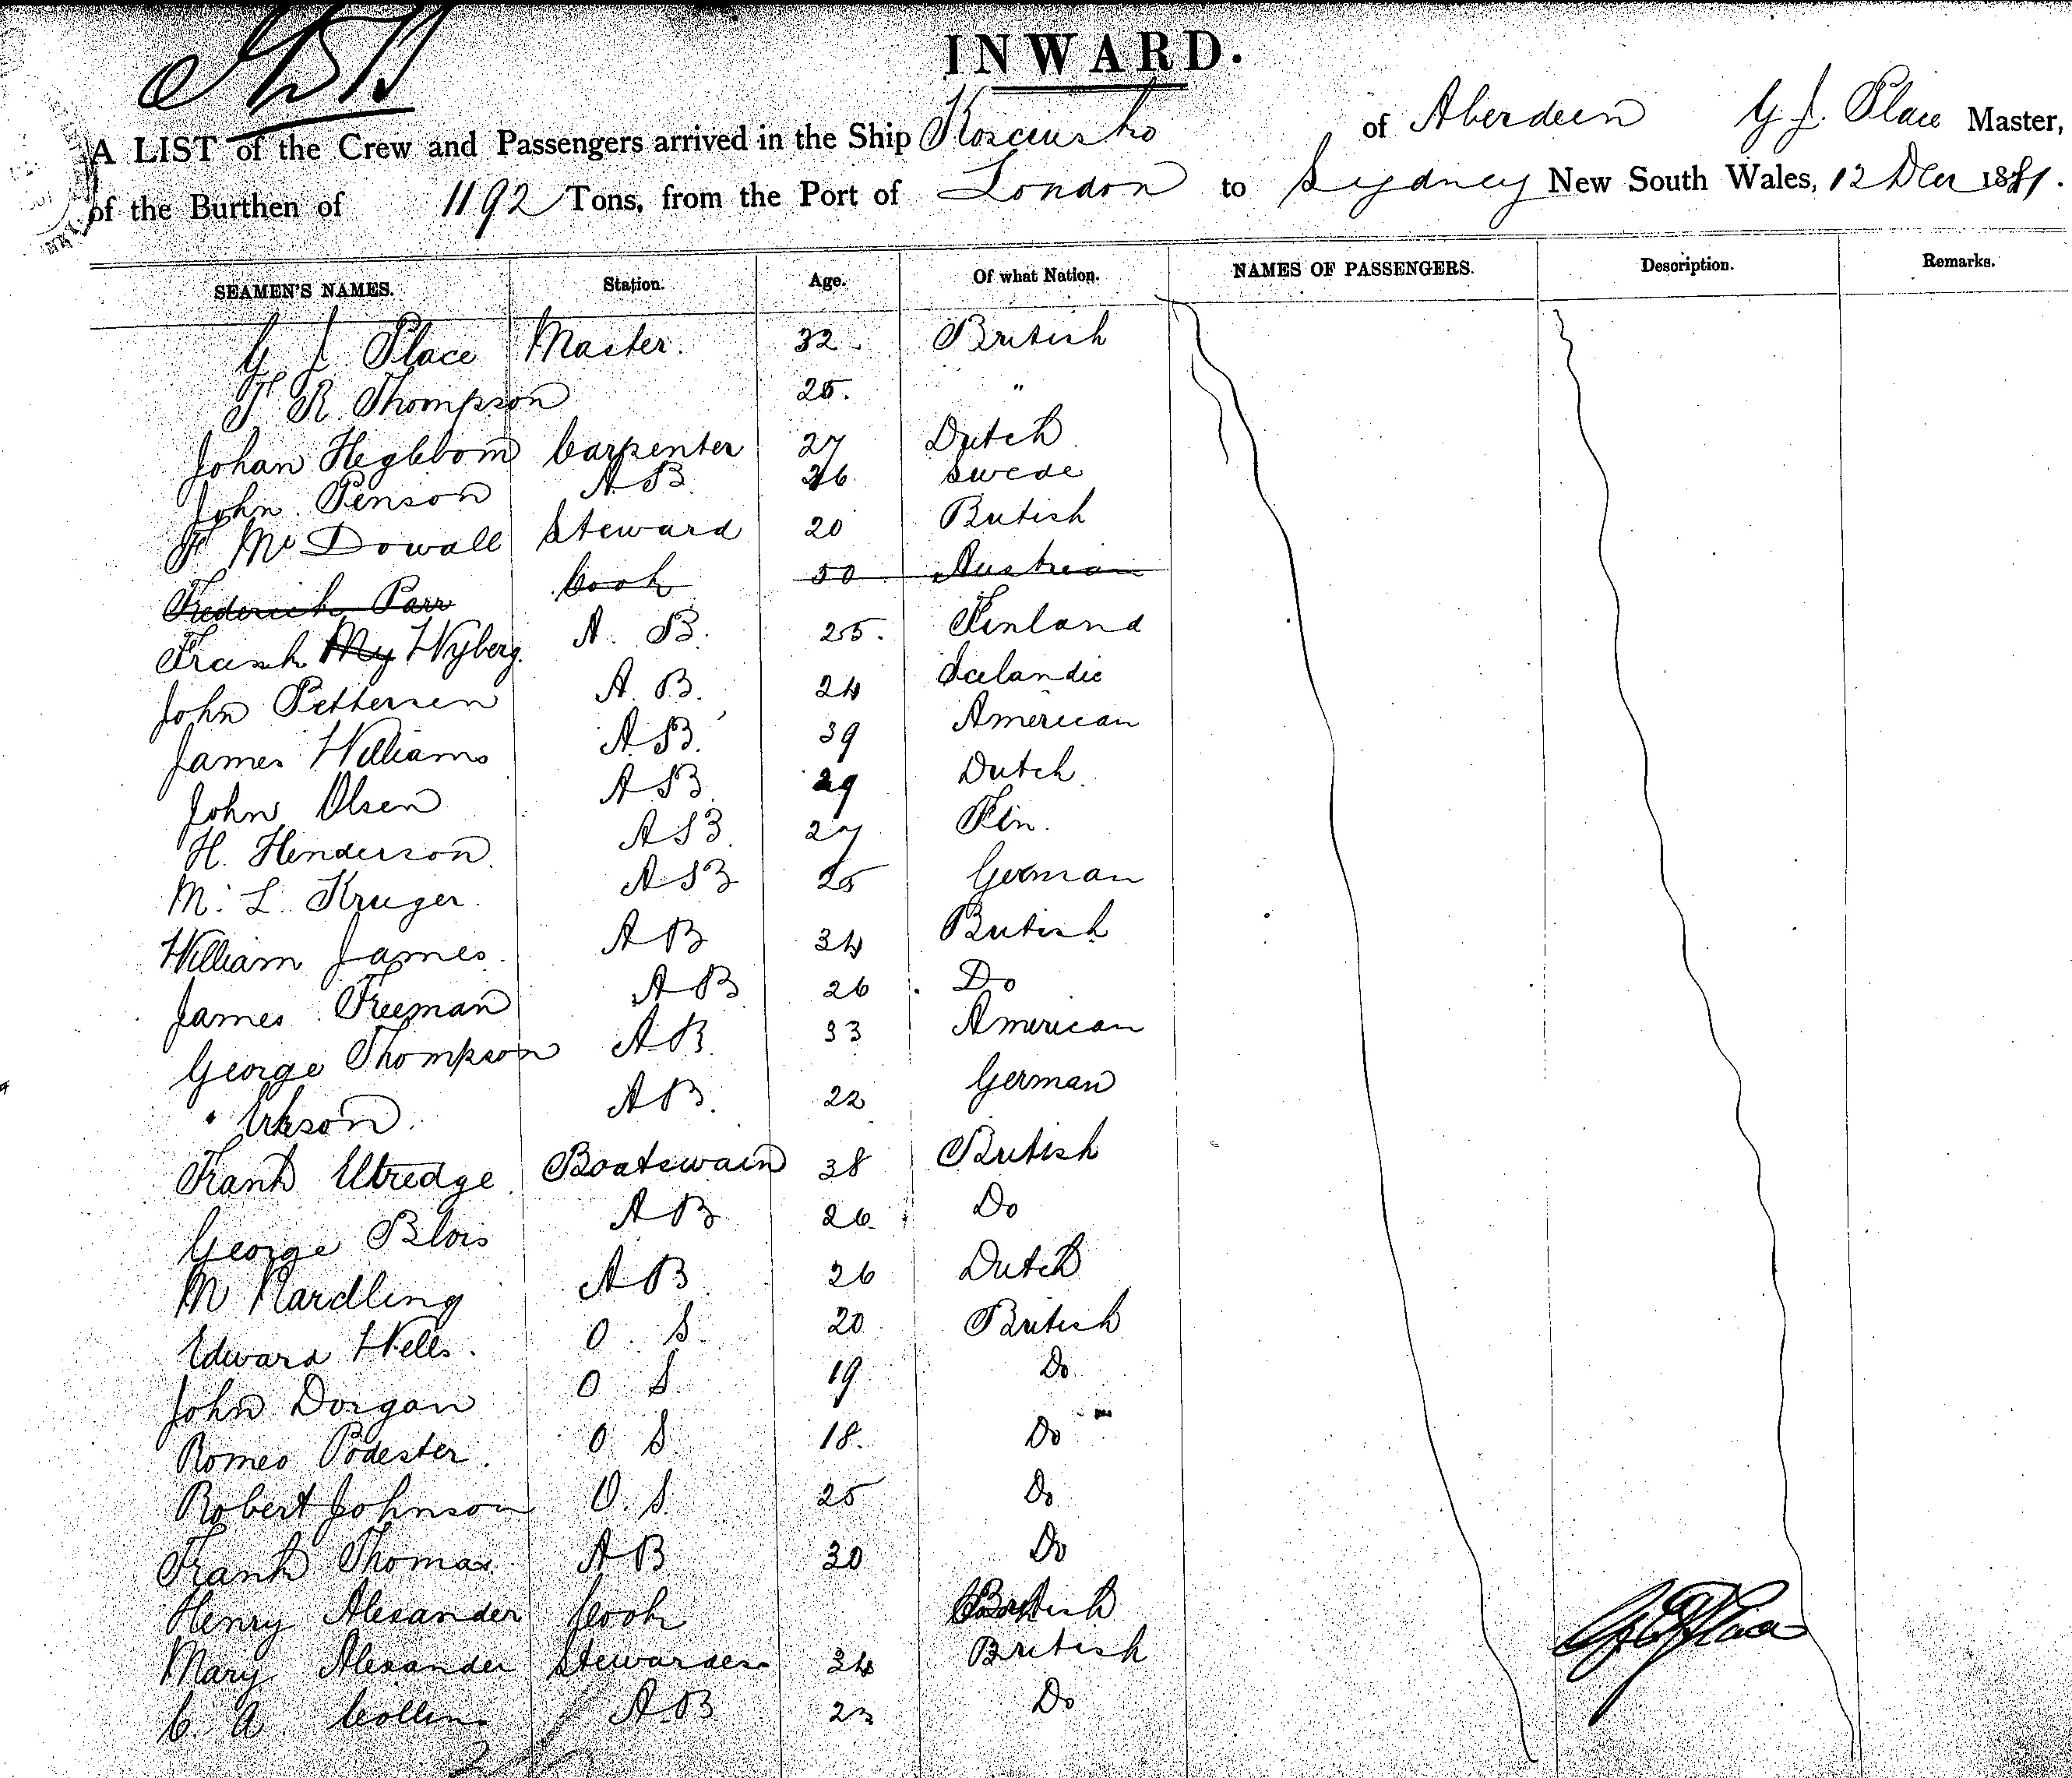 INWARD.
A LIST of the Crew and Passengers arrived in the Ship Kosciusko of Aberdeen G J. Place Master,
of the Burthen of 1192 Tons, from the Port of London to Sydney New South Wales, 12 Decr 1881.
SEAMEN'S NAMES. Station. Age. Of what Nation. NAMES OF PASSENGERS. Description. Remarks.
G J Place Master. 32 British
R Thompson 25. "
Johan Heglbom Carpenter 27 Dutch
John Penson A B 26 Swede
McDowall Steward 20 British
Frederick Parr Cook 50 Austrian
Frank My Wyberg. A. B. 25. Finland
John Pettersen A. B. 24 Icelandic
James Williams A B. 39 American
John Olsen A B. 29 Dutch
H. Henderson A B 27 Fin.
M. L. Kruger. A B 25 German
William James A B 34 British
James Freeman A B 26 Do
George Thompson A B 33 American
A B. 22 German
Frank Eltredge Boatswain 38 British
George Blois A B 26 Do
M Hardling A B 26 Dutch
Edward Wells. O. S. 20 British
John Dorgan O S. 19 Do
Romeo Podester. O S. 18. Do
Robert Johnson O. S. 25 Do
Frank Thomas A B 30 Do
Henry Alexander Cook British
Mary Alexander Stewardess 34 British
C. A. Collins A B 23 Do